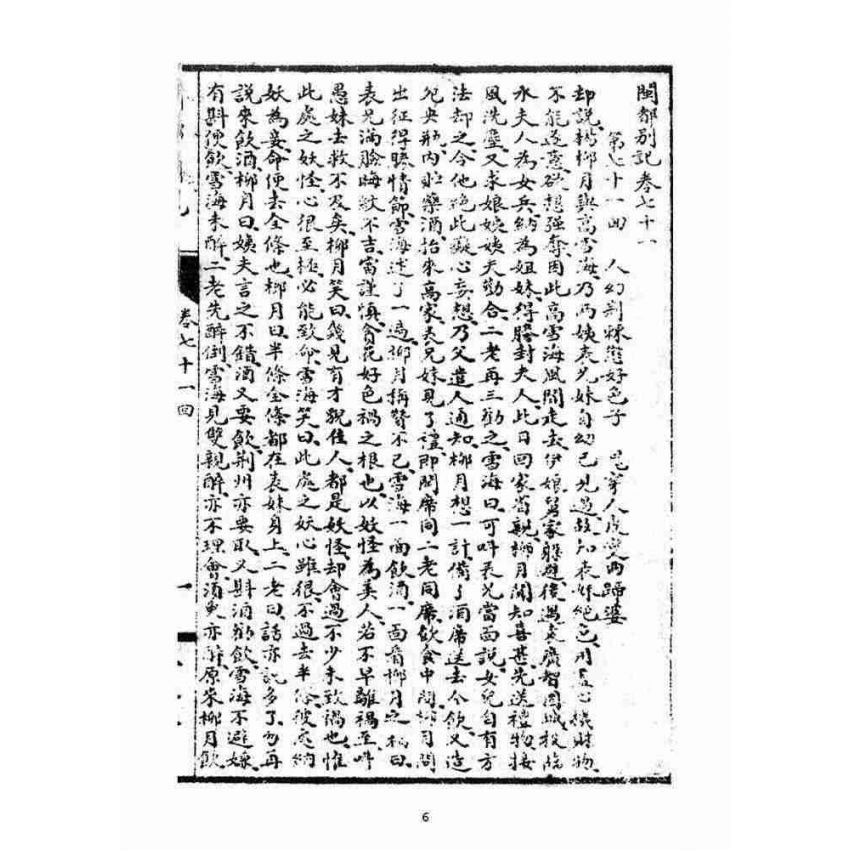 閩都別記卷七十一
第七十一回 人幻荆棘 好色子 人虎变两蹄婆
却説楊柳月與高雪海乃两姨表兄妹自幼已見過故知表妹絶色用盡心機財物
不能遂意欲想强奪因此高雪海風聞走去伊娘舅家躲避後遇袁廣智圍城投臨
水夫人為女兵納為姐妹得勝封夫人此日回家省親柳月聞知喜甚先送禮物接
風洗塵又求娘姨姨夫勸合二老再三勸之雪海曰可呌表兄當面説女兒自有方
法却之令他絶此癡心妄想乃父遣人通知柳月想一計俻了酒席送去令飲又造
鸳央瓶内貯藥酒抬來高家表兄妹見了禮即開席同二老同席飲食中間柳月問
出征得勝情節雪海述了一遍柳月稱賛不已雪海一面飲酒一面看柳月之 曰
表兄滿臉晦紋不吉當謹慎貪花好色禍之根也以妖怪為美人若不早離禍至呌
愚妹去救不及矣柳月笑曰幾見有才貌佳人都是妖怪却會過不少未致禍也惟
此處之妖怪心狠至極必能致命雪海笑曰此處之妖心雖狠不過去半條彼定納
妖為妾命便去全條也柳月曰半條全條都在表妹身上二老曰話亦説多了勿再
説來飲酒柳月曰姨夫言之不錯酒又要飲荆州亦要取又斟酒勸飲雪海不避嫌
有斟便飲雪海未醉二老先醉倒雪海見雙親醉亦不理會酒 亦醉原来柳月飲
卷七十一回
一
6